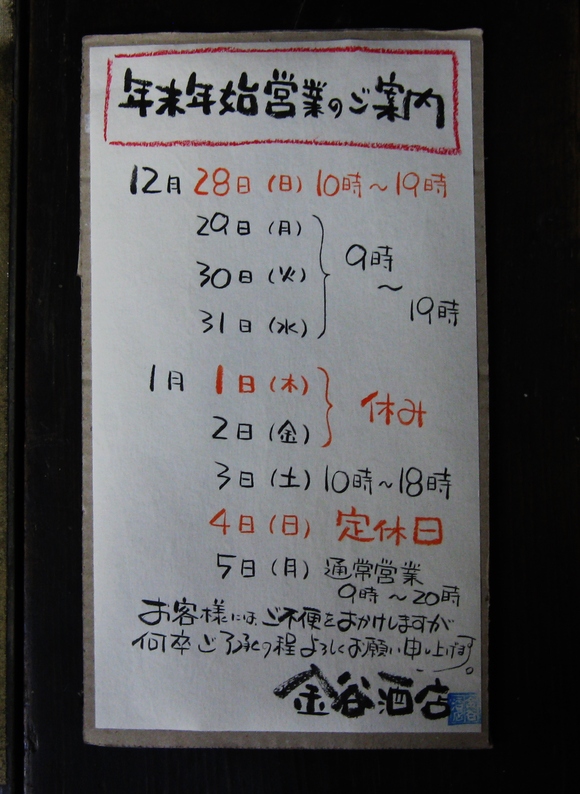 年末年始営業のご案内
12月 28日(日) 10時～19時
29日(月)
30日(火)
31日(水)
9時
～
19時
1月 1日(木)
2日(金)
休み
3日(土) 10時～18時
4日(日) 定休日
5日(月) 通常営業
9時～20時
お客様には、ご不便をおかけしますが
何卒ご了承の程よろしくお願い申し上げます。
金谷酒店